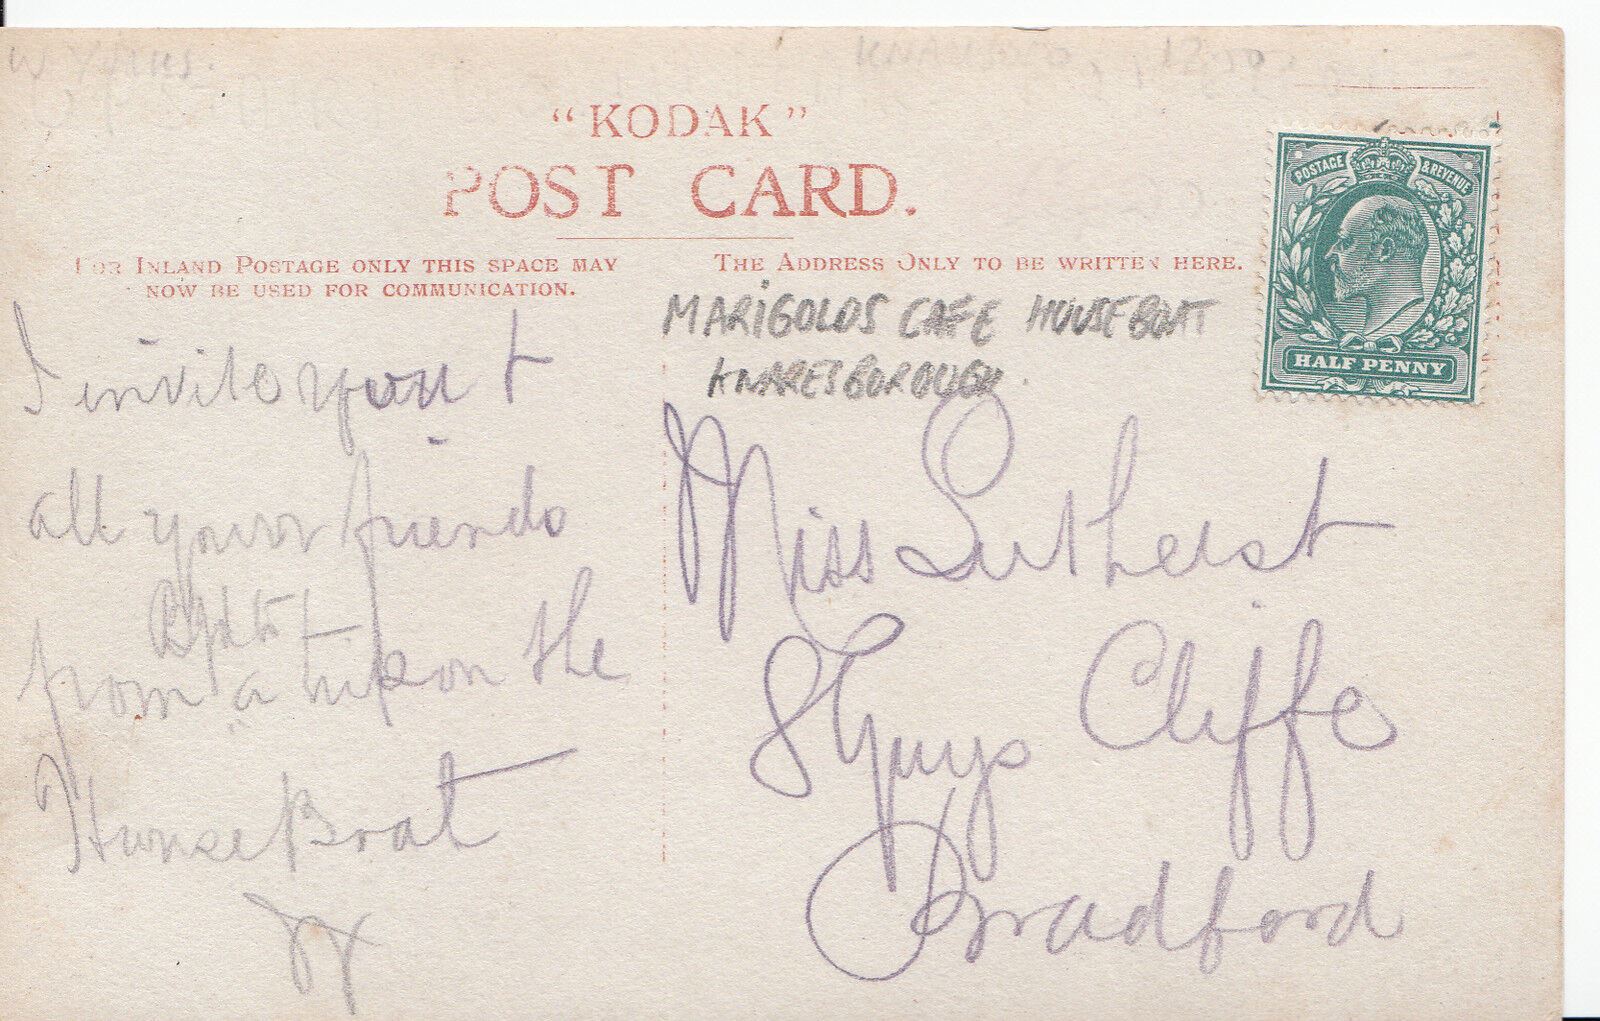 W YORKS.
"KODAK"
POST CARD.
FOR INLAND POSTAGE ONLY THIS SPACE MAY
NOW BE USED FOR COMMUNICATION.
THE ADDRESS ONLY TO BE WRITTEN HERE.
POSTAGE & REVENUE
HALF PENNY
MARIGOLDS CAFE HOUSEBOAT
KNARESBOROUGH.
I invite you &
all your friends
from a trip on the
House Boat
Miss Sutherst
Cliffe
Bradford